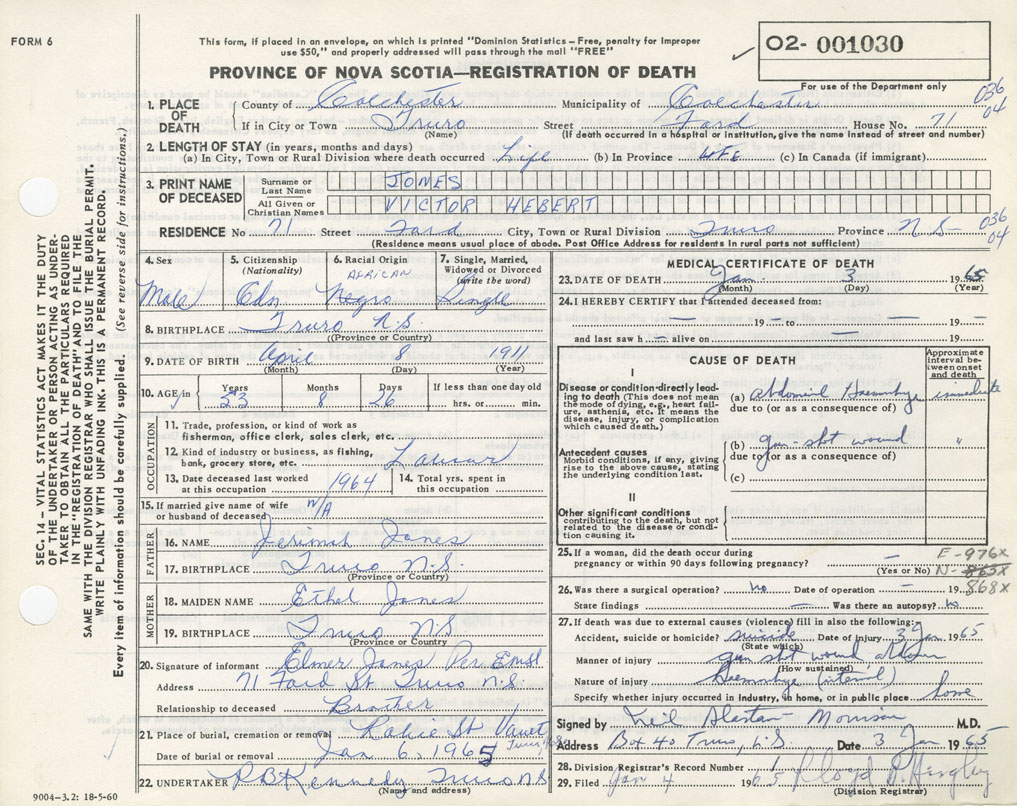 FORM 6
This form, if placed in an envelope, on which is printed "Dominion Statistics – Free, penalty for improper
use $50," and properly addressed will pass through the mail "FREE"
PROVINCE OF NOVA SCOTIA—REGISTRATION OF DEATH
✓ O2- 001030
For use of the Department only
036
04
1. PLACE OF DEATH
County of Colchester Municipality of Colchester
If in City or Town Truro Street Ford House No. 71
(Name) (If death occurred in a hospital or institution, give the name instead of street and number)
2. LENGTH OF STAY (in years, months and days)
(a) In City, Town or Rural Division where death occurred Life (b) In Province LIFE (c) In Canada (if immigrant)
3. PRINT NAME OF DECEASED
Surname or Last Name JONES
All Given or Christian Names VICTOR HEBERT
RESIDENCE No 71 Street Ford City, Town or Rural Division Truro Province N S- 036
04
(Residence means usual place of abode. Post Office Address for residents in rural parts not sufficient)
4. Sex Male
5. Citizenship (Nationality) Cdn
6. Racial Origin AFRICAN Negro
7. Single, Married, Widowed or Divorced (write the word) Single
8. BIRTHPLACE Truro N.S.
((Province or Country)
9. DATE OF BIRTH April 8 1911
(Month) (Day) (Year)
10. AGE in Years 53 Months 8 Days 26 If less than one day old hrs. or min.
OCCUPATION
11. Trade, profession, or kind of work as
fisherman, office clerk, sales clerk, etc.
12. Kind of industry or business, as fishing,
bank, grocery store, etc.
13. Date deceased last worked
at this occupation 1964
14. Total yrs. spent in
this occupation
15. If married give name of wife
or husband of deceased N/A
FATHER
16. NAME Jerimah Jones
17. BIRTHPLACE Truro N.S.
(Province or Country)
MOTHER
18. MAIDEN NAME Ethel Jones
19. BIRTHPLACE Truro N.S
(Province or Country)
20. Signature of informant Elmer Jones Per
Address 71 Ford St Truro N.S.
Relationship to deceased Brother
21. Place of burial, cremation or removal
Date of burial or removal Jan 6, 1965
22. UNDERTAKER R B Kennedy Truro N.S
(Name and address)
9004–3.2: 18-5-60
SEC. 14 – VITAL STATISTICS ACT MAKES IT THE DUTY
OF THE UNDERTAKER OR PERSON ACTING AS UNDER-
TAKER TO OBTAIN ALL THE PARTICULARS REQUIRED
IN THE "REGISTRATION OF DEATH" AND TO FILE THE
SAME WITH THE DIVISION REGISTRAR WHO SHALL ISSUE THE BURIAL PERMIT.
WRITE PLAINLY WITH UNFADING INK. THIS IS A PERMANENT RECORD.
Every item of information should be carefully supplied. (See reverse side for instructions.)
MEDICAL CERTIFICATE OF DEATH
23. DATE OF DEATH Jan 3 1965
(Month) (Day) (Year)
24. I HEREBY CERTIFY that I attended deceased from:
— 19 — to — 19 —
and last saw h — alive on — 19 —
CAUSE OF DEATH
Approximate interval between onset and death
I
Disease or condition directly leading to death (This does not mean the mode of dying, e.g., heart failure, asthenia, etc. It means the disease, injury, or complication which caused death.)
(a) abdominal immediate
due to (or as a consequence of)
Antecedent causes
Morbid conditions, if any, giving rise to the above cause, stating the underlying condition last.
(b) gun-shot wound "
due to (or as a consequence of)
(c)
II
Other significant conditions
contributing to the death, but not related to the disease or condition causing it.
25. If a woman, did the death occur during
pregnancy or within 90 days following pregnancy? —
(Yes or No)
E-976X
N-865X
868X
26. Was there a surgical operation? no Date of operation — 19
State findings — Was there an autopsy? no
27. If death was due to external causes (violence) fill in also the following:
Accident, suicide or homicide? suicide Date of injury 3 Jan 1965
(State which)
Manner of injury gun shot wound
(How sustained)
Nature of injury
Specify whether injury occurred in industry, in home, or in public place home
Signed by Neil Morrison M.D.
Address Box 40 Truro, N.S. Date 3 Jan 1965
28. Division Registrar's Record Number 1
29. Filed Jan 4 1965
(Division Registrar)